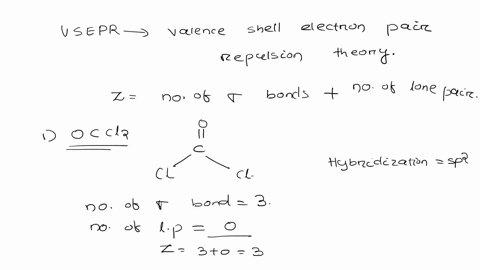 VSEPR → valence shell electron pair
repulsion theory.
Z = no. of σ bonds + no. of lone pair.
1) OCCl2
O
C
Cl Cl
Hybridization = sp2
no. of σ bond = 3.
no. of l.p = 0
Z = 3+0 = 3